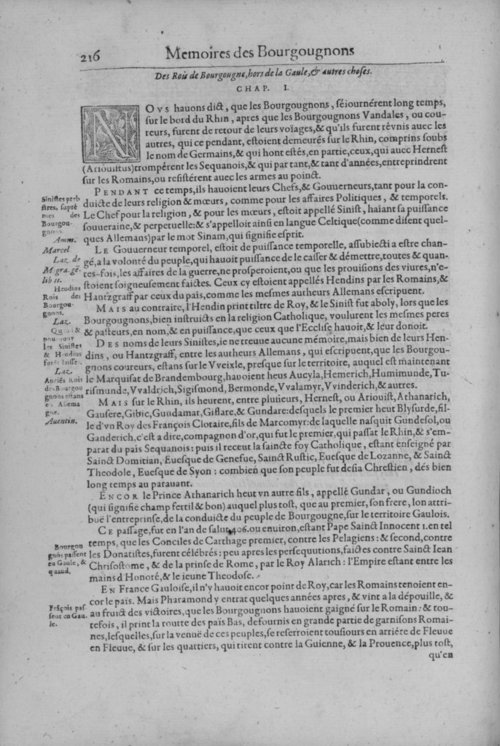 216 Memoires des Bourgougnons
Des Rois de Bourgougne, hors de la Gaule, & autres choses.
CHAP. I.
NOVS hauons dict, que les Bourgougnons, séiournérent long temps,
sur le bord du Rhin, apres que les Bourgougnons Vandales, ou cou-
reurs, furent de retour de leurs voiages, & qu'ils furent réunis auec les
autres, qui ce pendant, estoient demeurés sur le Rhin, comprins soubs
le nom de Germains, & qui hont estés, en partie, ceux, qui auec Hernest
(Ariouistus) trompérent les Sequanois, & qui par tant, & tant d'années, entreprindrent
sur les Romains, ou resistérent auec les armes au poinct.
PENDANT ce temps, ils hauoient leurs Chefs, & Gouuerneurs, tant pour la con-
duicte de leurs religion & mœurs, comme pour les affaires Politiques, & temporels.
Le Chef pour la religion, & pour les mœurs, estoit appellé Sinist, haiant sa puissance
souueraine, & perpetuelle: & s'appelloit ainsi en langue Celtique (comme disent quel-
ques Allemans) par le mot Sinam, qui signifie esprit.
LE Gouuerneur temporel, estoit de puissance temporelle, assubiecti a estre chan-
gé, a la volonté du peuple, qui hauoit puissance de le casser & démettre, toutes & quan-
tes-fois, les affaires de la guerre, ne prosperoient, ou que les prouisions des viures, n'e-
stoient soigneusement faictes. Ceux cy estoient appellés Hendins par les Romains, &
Hantzgraff par ceux du païs, comme les mesmes autheurs Allemans escripuent.
MAIS au contraire, l'Hendin print tiltre de Roy, & le Sinist fut aboly, lors que les
Bourgougnons, bien instruicts en la religion Catholique, voulurent les mesmes peres
& pasteurs, en nom, & en puissance, que ceux que l'Ecclise hauoit, & leur donoit.
DES noms de leurs Sinistes, ie ne treuue aucune mémoire, mais bien de leurs Hen-
dins, ou Hantzgraff, entre les autheurs Allemans, qui escripuent, que les Bourgou-
gnons coureurs, estans sur le Vveixle, presque sur le territoire, auquel est maintenant
le Marquisat de Brandembourg, hauoient heus Aucyla, Hemerich, Humimunde, Tu-
rismunde, Vvaldrich, Sigismond, Bermonde, Vvalamyr, Vvinderich, & autres.
MAIS sur le Rhin, ils heurent, entre plusieurs, Hernest, ou Ariouist, Athanarich,
Gausere, Gibic, Gundamar, Gislare, & Gundare: desquels le premier heut Blysurde, fil-
le d'vn Roy des François Clotaire, fils de Marcomyr: de laquelle nasquit Gundesol, ou
Ganderich, c'est a dire, compagnon d'or, qui fut le premier, qui passat le Rhin, & s'em-
parat du païs Sequanois: puis il receut la saincte foy Catholique, estant enseigné par
Sainct Domitian, Euesque de Geneſue, Sainct Rustic, Euesque de Lozanne, & Sainct
Theodole, Euesque de Syon: combien que son peuple fut desia Chrestien, dés bien
long temps au parauant.
ENCOR le Prince Athanarich heut vn autre fils, appellé Gundar, ou Gundioch
(qui signifie champ fertil & bon) auquel plus tost, que au premier, son frere, lon attri-
bue l'entreprinse, de la conduicte du peuple de Bourgougne, sur le territoire Gaulois.
CE passage, fut en l'an de salut 406. ou enuiron, estant Pape Sainct Innocent 1. en tel
temps, que les Conciles de Carthage premier, contre les Pelagiens: & second, contre
les Donatistes, furent célébrés: peu apres les persequutions, faictes contre Sainct Iean
Chrisostome, & de la prinse de Rome, par le Roy Alarich: l'Empire estant entre les
mains d'Honoré, & le ieune Theodose.
EN France Gauloise, il n'y hauoit encor point de Roy, car les Romains tenoient en-
cor le païs. Mais Pharamond y entrat quelques années apres, & vint a la dépouille, &
au fruict des victoires, que les Bourgougnons hauoient gaigné sur le Romain: & tou-
tefois, il print la routte des païs Bas, defournis en grande partie de garnisons Romai-
nes, lesquelles, sur la venuë de ces peuples, se reserroient tousiours en arriére de Fleuue
en Fleuue, & sur les quartiers, qui tirent contre la Guienne, & la Prouence, plus tost,
qu'en
Sinistes perb
stres, supté
mes des
Bourgou-
gnons.
Amm.
Marcel
Laz. de
Mgra. gé.
lib 11.
Hendins
Rois des
Bourgou-
gnons.
Laz.
les Sinistes
& Hendins
Laz.
Anciés rois
des Bourgou
gnons estans
en Allema
gne.
Auentin.
Bourgou
gnõs passent
en Gaule, &
quand.
Frãçois pas
sent en Gau
le.